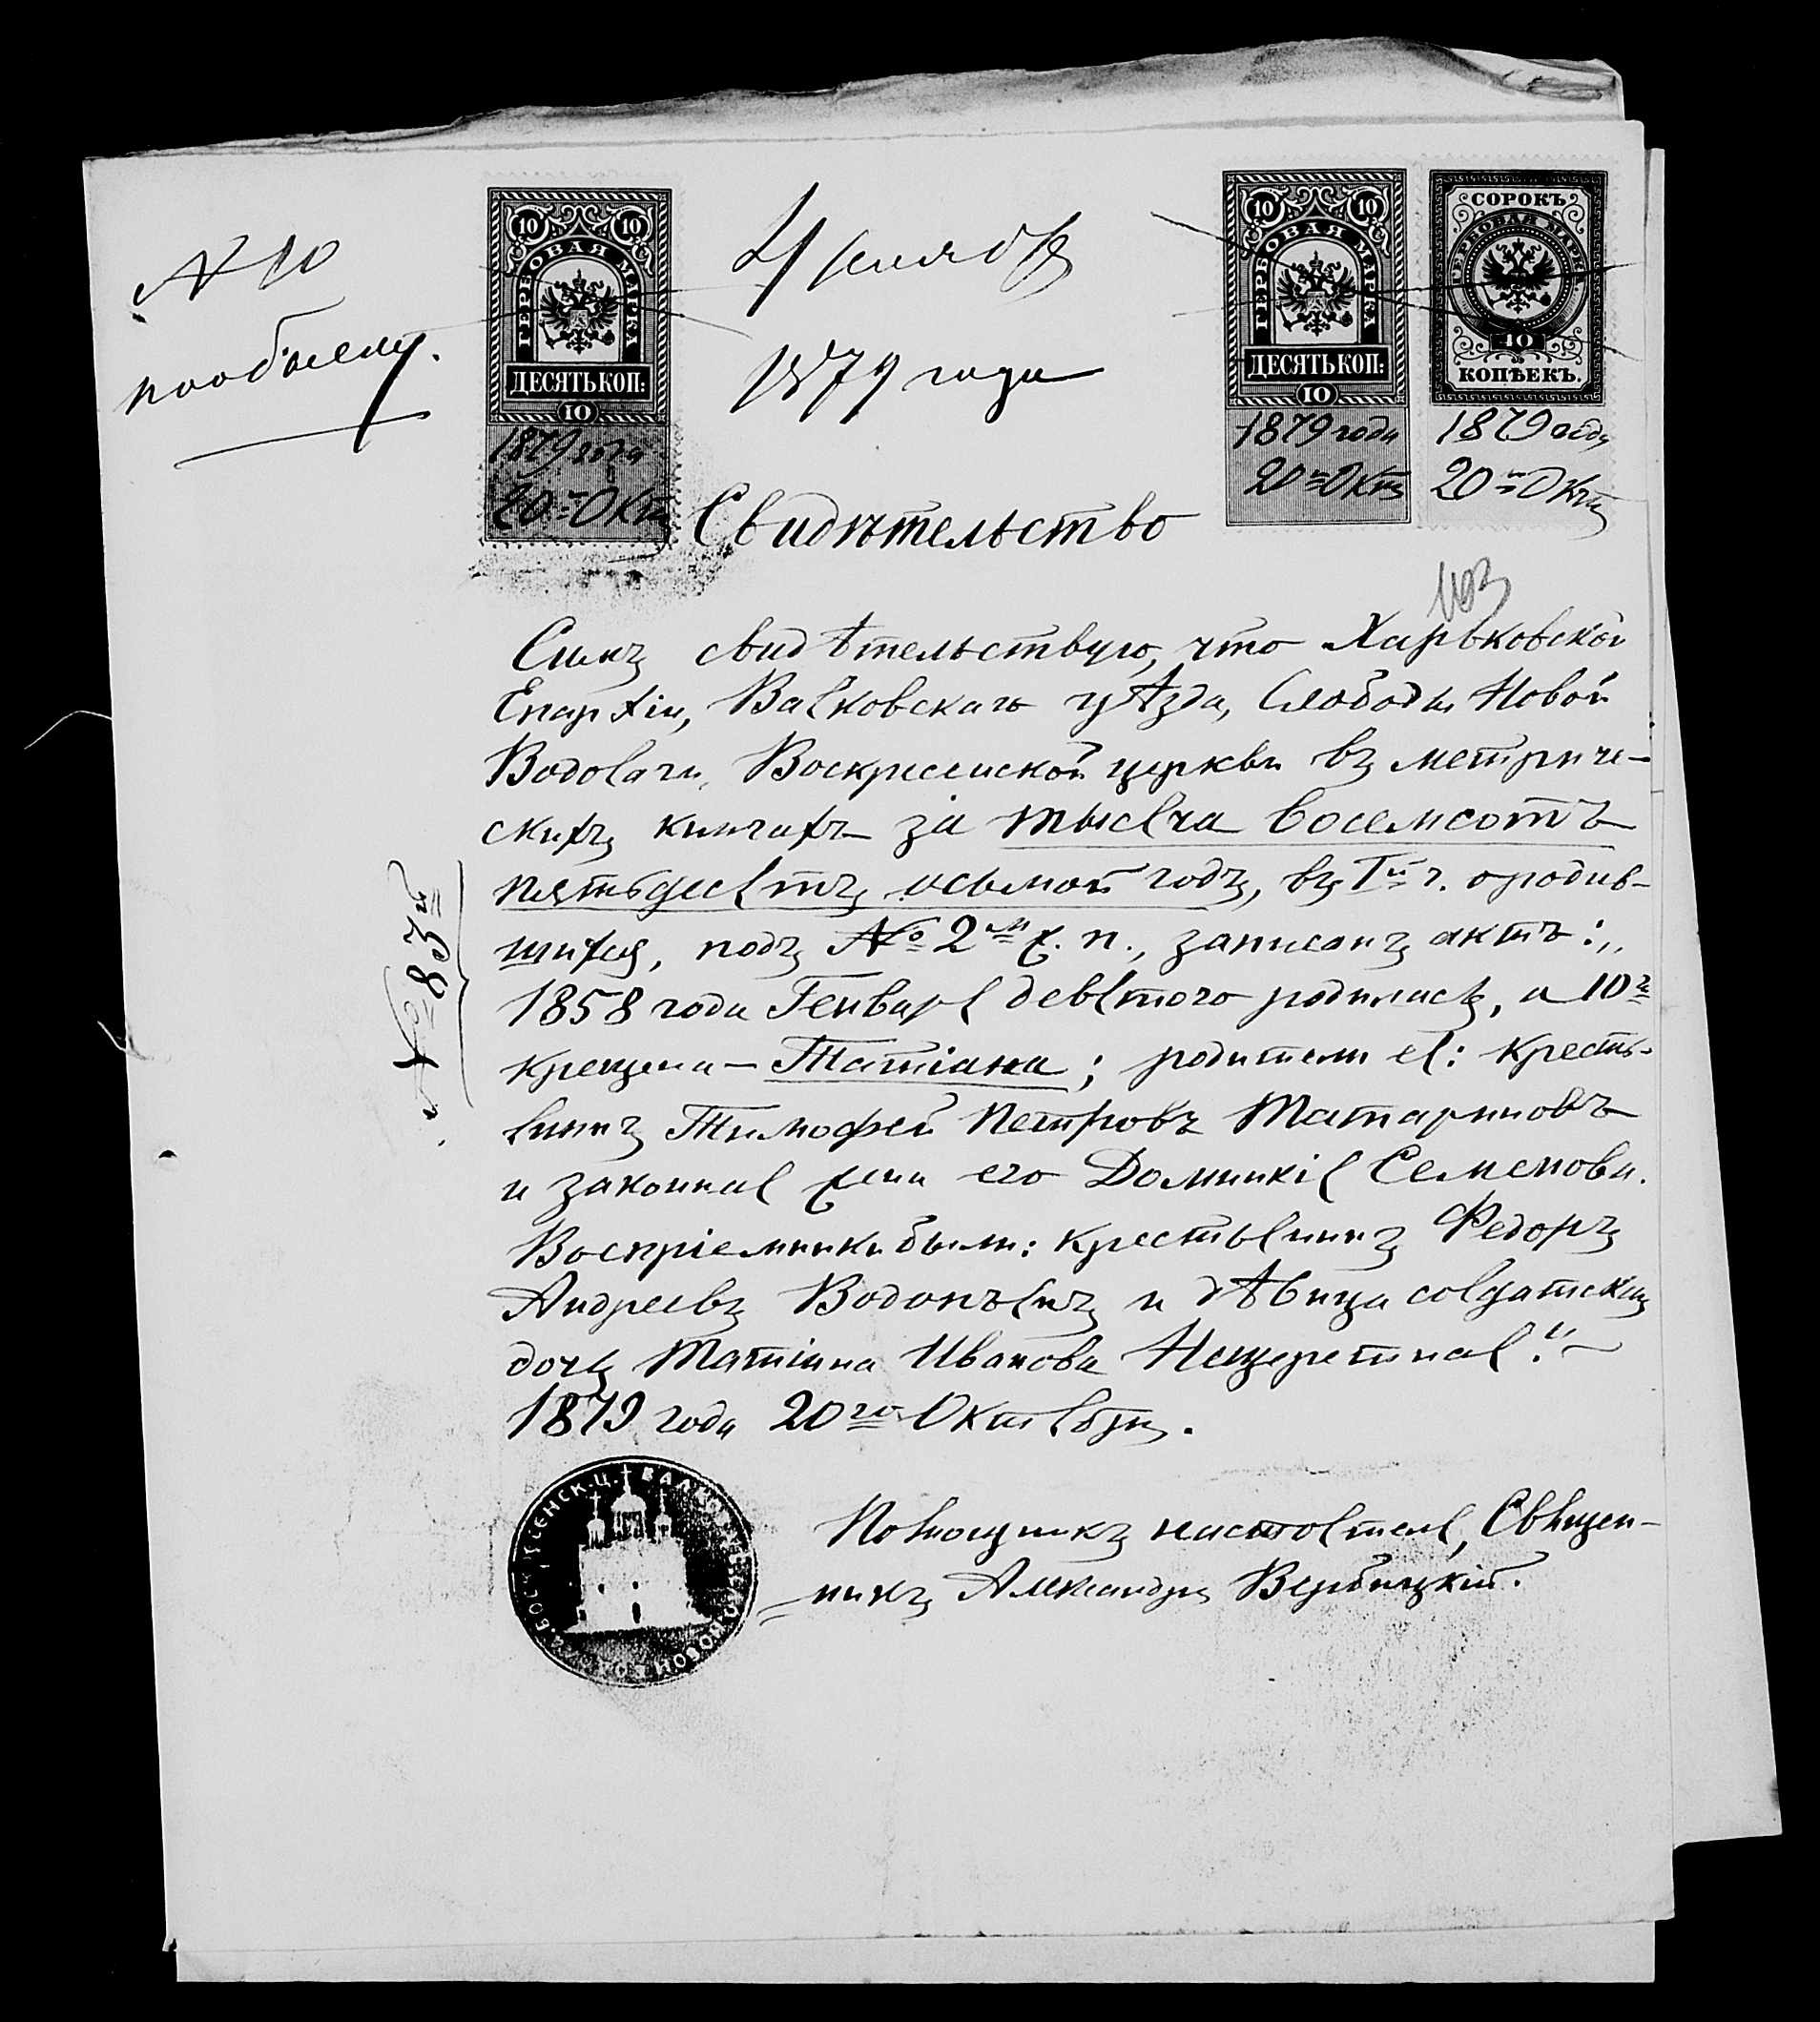 № 10
10 10
ГЕРБОВАЯ МАРКА
ДЕСЯТЬ КОП:
10
1879 года
20го Окт
1879 года
10 10
ГЕРБОВАЯ МАРКА
ДЕСЯТЬ КОП:
10
1879 года
20го Окт
СОРОКЪ
ГЕРБОВАЯ МАРКА
40
КОПѢЕКЪ.
1879 года
20го Окт
Свидѣтельство
103
Симъ свидѣтельствую, что Харьковской
Епархіи, Валковскаго уѣзда, Слободы Новой
Водолаги, Воскресенской церкви въ метриче-
скихъ книгахъ за тысяча восемсотъ
пятьдесятъ осьмой годъ, въ Iй ч. о родив-
шихся, подъ № 2м ж. п., записанъ актъ: „
1858 года Генваря девятого родилась, а 10го
крещена — Татіана; родители ея: кресть-
янинъ Тимофей Петровъ Татариновъ
и законная жена его Домникія Семенова.
Воспріемники были: крестьянинъ Федоръ
Андреевъ Водопьянъ и дѣвица солдатская
дочь Татіана Иванова Нещеретная."
1879 года 20го Октября.
№ 83й
Помощникъ настоятеля, Священ-
никъ Александръ Вербицкій.